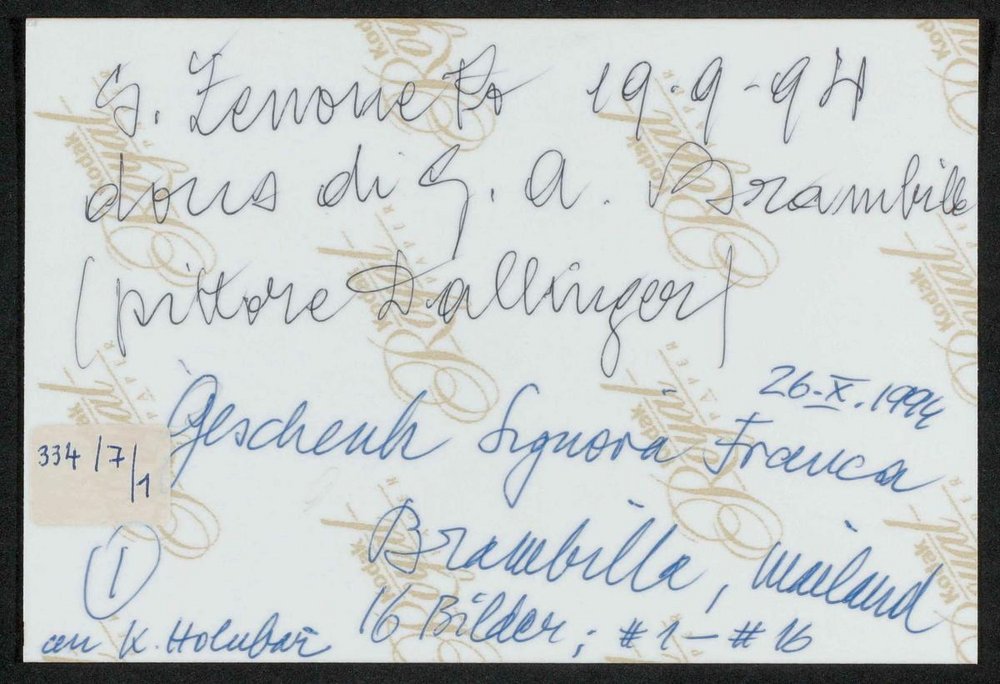 S. Zenone Po 19-9-94
dono di G. A. Brambilla
(pittore Dallinger)
26-X.1994
Geschenk Signora Franca
334/7/1
Brambilla, Mailand
1
16 Bilder; #1-#16
an K. Holubar
Kodak
Royal
PAPER